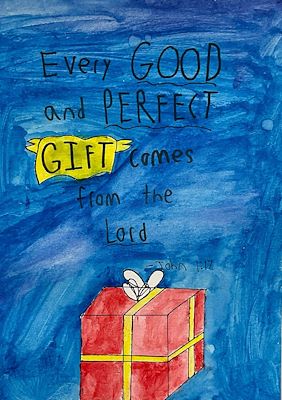 Every GOOD
and PERFECT
GIFT comes
from the
Lord
- John 1:17